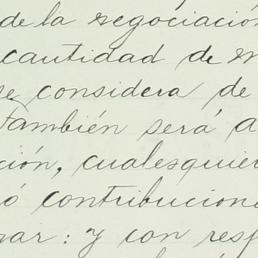 de la negociación
cantidad de
se considera de
también será a
ción, cualesquier
ó contribucion
nar: y con resp